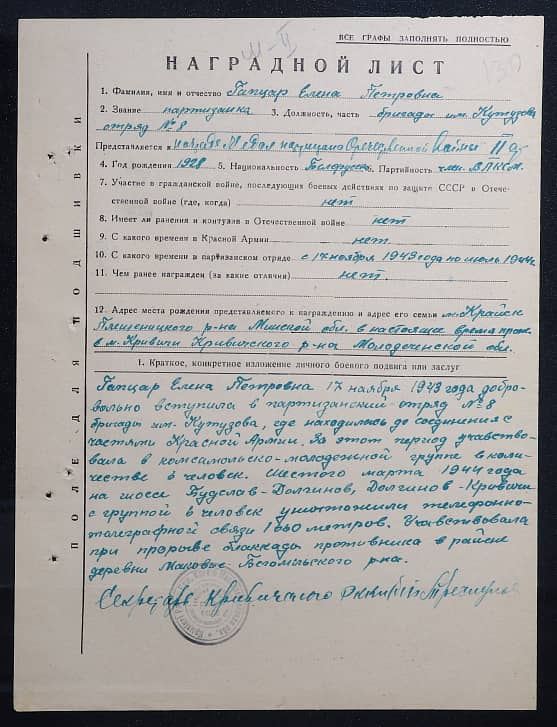 ВСЕ ГРАФЫ ЗАПОЛНЯТЬ ПОЛНОСТЬЮ
НАГРАДНОЙ ЛИСТ
1. Фамилия, имя и отчество Гапцар Елена Петровна
2. Звание партизанка 3. Должность, часть бригады им. Кутузова
отряд № 8
Представляется Отечественной Войны II
4. Год рождения 1928 5. Национальность 6. Партийность член ВЛКСМ
7. Участие в гражданской войне, последующих боевых действиях по защите СССР и Отече-
ственной войне (где, когда) нет
8. Имеет ли ранения и контузии в Отечественной войне нет
9. С какого времени в Красной Армии нет.
10. С какого времени в партизанском отряде с 17 ноября 1943 года по июль 1944г.
11. Чем ранее награжден (за какие отличия) нет.
12. Адрес места рождения представляемого к награждению и адрес его семьи м. Крайск
Плещеницкого р-на Минской обл. в настоящее время прож.
в м. Кривичи Кривичского р-на Молодеченской обл.
1. Краткое, конкретное изложение личного боевого подвига или заслуг
Гапцар Елена Петровна 17 ноября 1943 года добро-
вольно вступила в партизанский отряд № 8
бригады им. Кутузова, где находилась до соединения с
частями Красной Армии. За этот период участво-
вала в комсамольско-молодежной группе в коли-
честве 6 человек. Шестого марта 1944 года
на шоссе Будслав-Долгинов, Долгинов-Кривичи
с группой 6 человек уничтожили телефонно-
телеграфной связи 1660 метров. Учавствовала
при прорыве блоккады противника в районе
деревни Маковье Бегомльского р-на.
Секретарь Кривичского
ПОЛЕ ДЛЯ ПОДШИВКИ